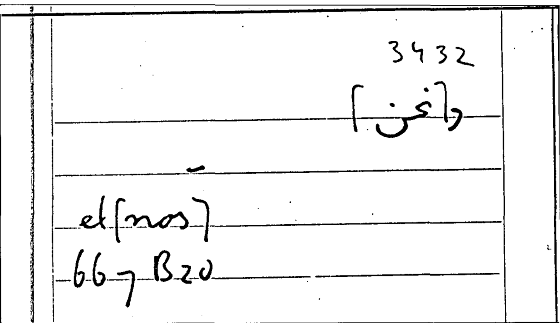 3432
و[نحن]
et[nos]
667 B20